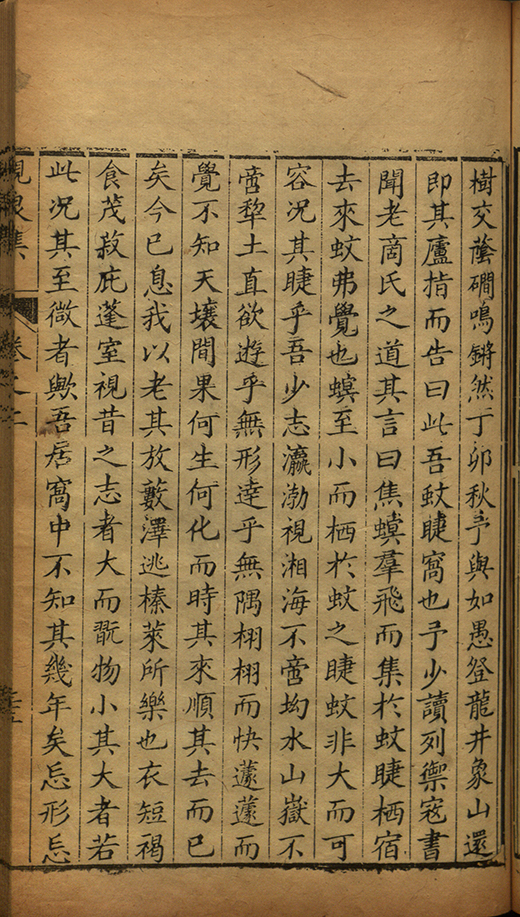 樹交蔭磵鳴鏘然丁卯秋予與如愚登龍井象山還
即其廬指而告曰此吾蚊睫窩也予少讀列禦寇書
聞老商氏之道其言曰焦螟羣飛而集於蚊睫栖宿
去來蚊弗覺也螟至小而栖於蚊之睫蚊非大而可
容況其睫乎吾少志瀛渤視湘海不啻坳水山嶽不
啻犂土直欲遊乎無形逹乎無隅栩栩而快蘧蘧而
覺不知天壤間果何生何化而時其來順其去而已
矣今已息我以老其放藪澤逃榛萊所樂也衣短褐
食茂菽庇蓬室視昔之志者大而翫物小其大者若
此况其至微者歟吾居窩中不知其幾年矣忘形忘
集 卷之二